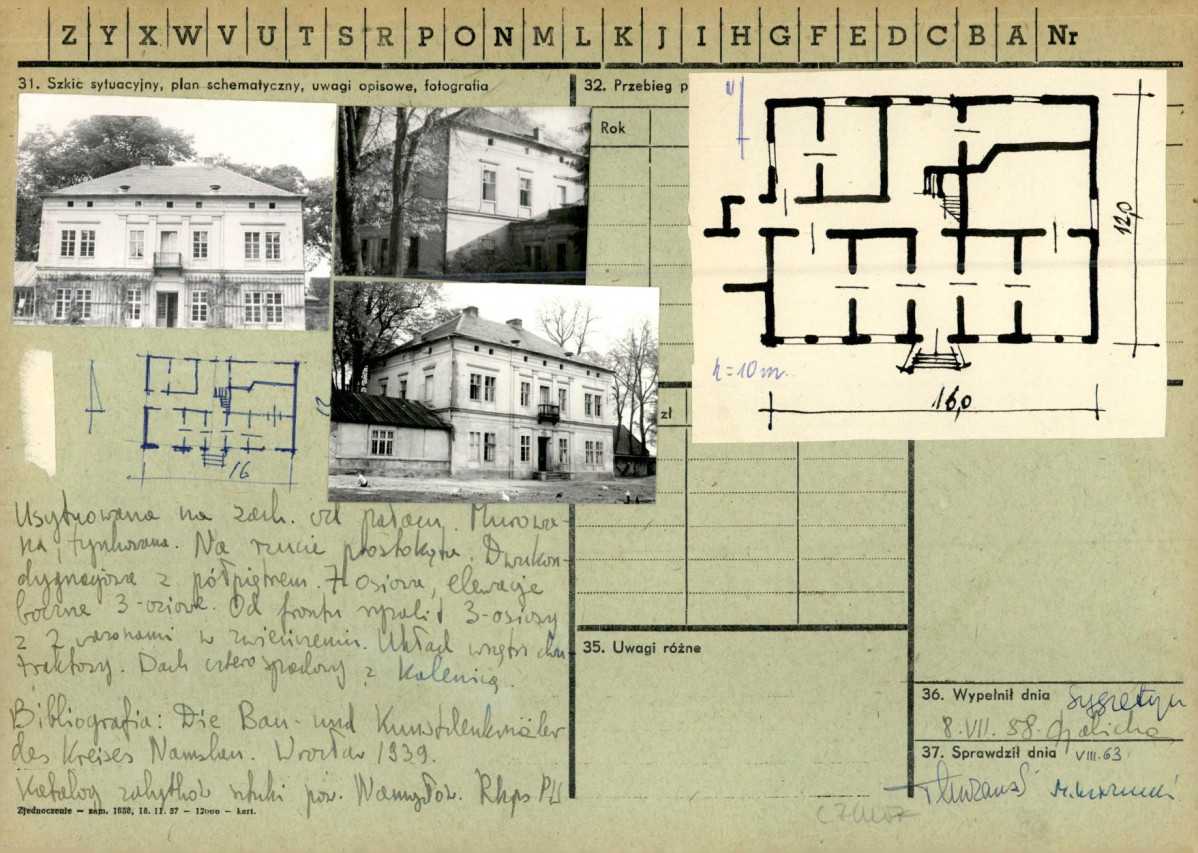 Z Y X W V U T S R P O N M L K J I H G F E D C B A Nr
31. Szkic sytuacyjny, plan schematyczny, uwagi opisowe, fotografia
32. Przebieg p
Rok
zł
12,0
h=10m.
16,0
12
16
Usytuowana na zach. od pałacu. Murowa-
na, tynkowana. Na rzucie prostokąta. Dwukon-
dygnacjowa z półpiętrem. 7 osiowa, elewacje
boczne 3-osiowe. Od frontu ryzalit 3-osiowy
z 2 wazonami w zwieńczeniu. Układ wnętrz dwu-
traktowy. Dach czterospadowy z kalenicą.
Bibliografia: Die Bau- und Kunstdenkmäler
des Kreises Namslau. Wrocław 1939.
Katalog zabytków sztuki pow. Namysłów. Rkps
Zjednoczenie — zam. 1658, 18. 11. 57 — 12000 — kart.
35. Uwagi różne
36. Wypełnił dnia
8. VII. 58.
37. Sprawdził dnia VIII.63